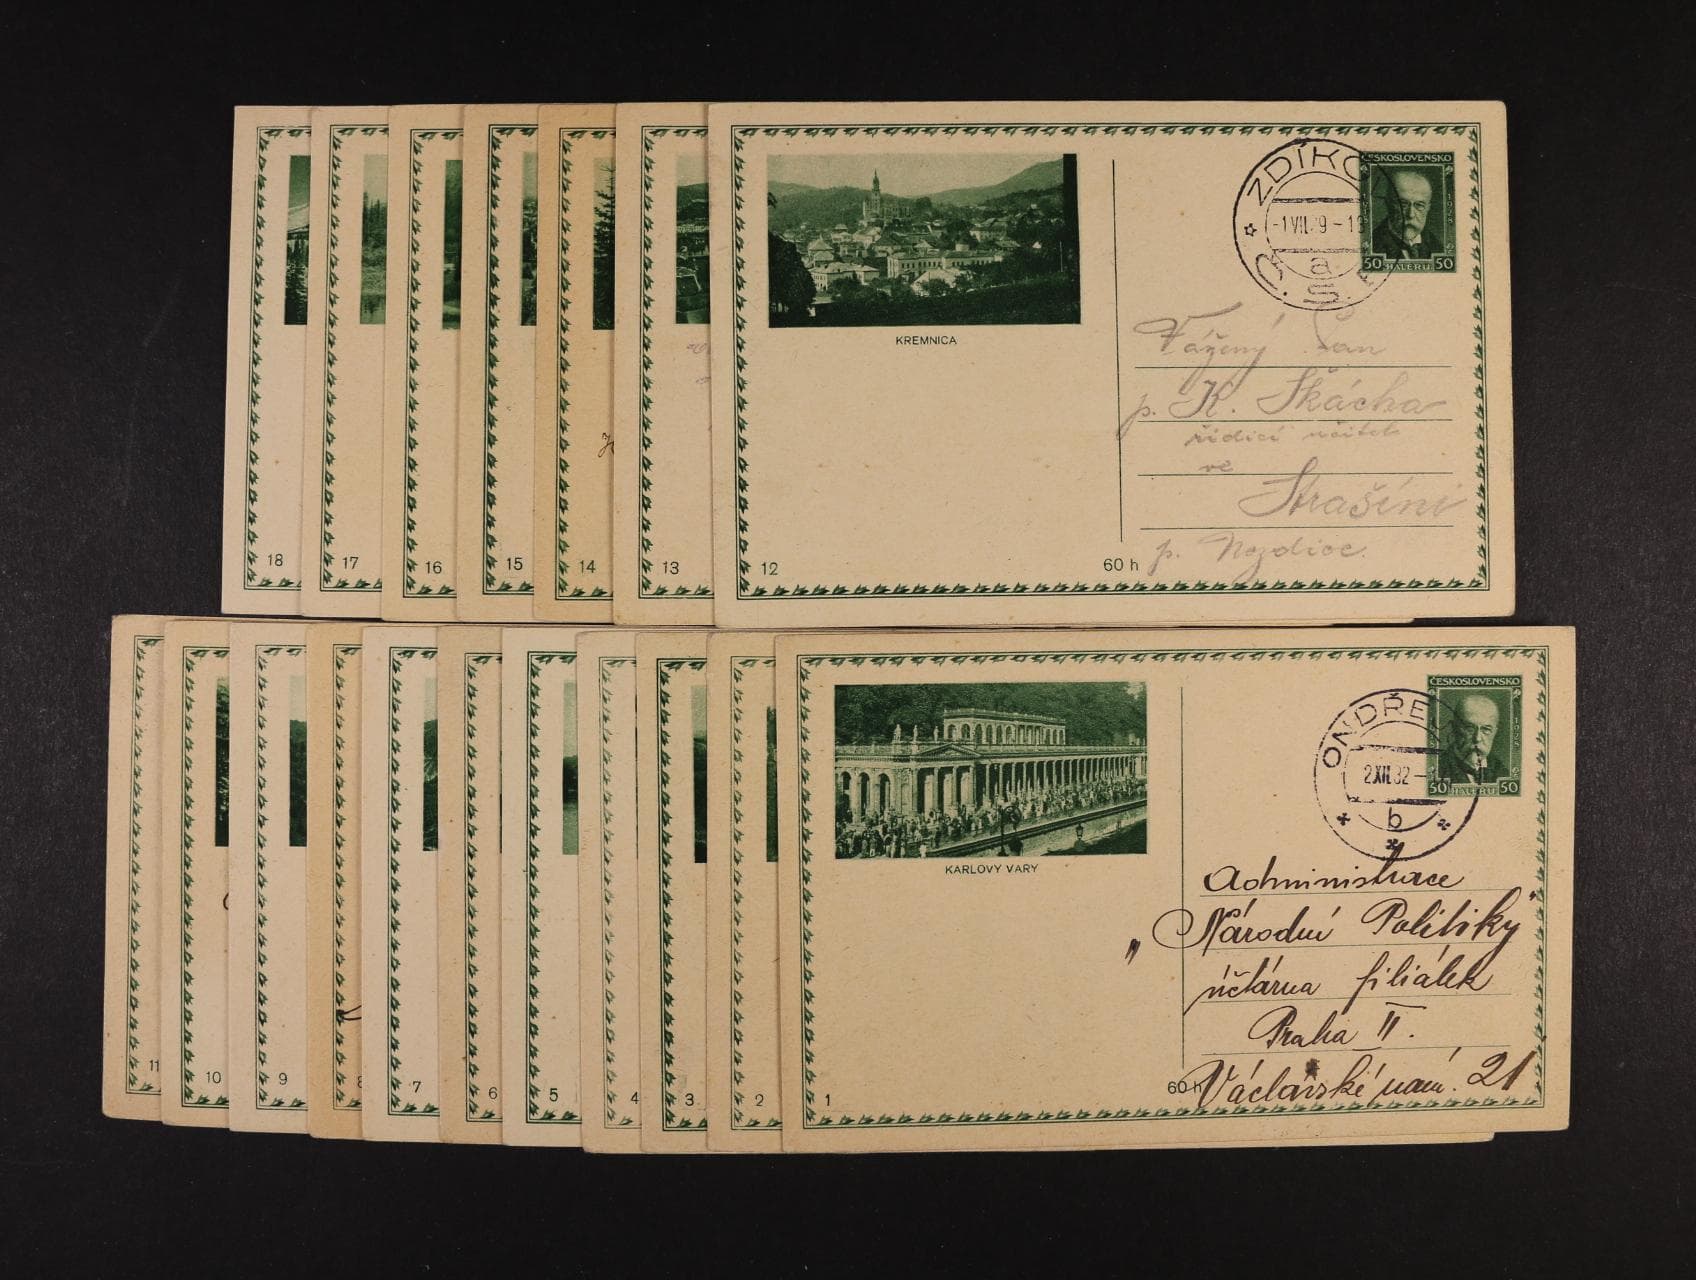 18
17
16
15
14
13
12
KREMNICA
60 h
ČESKOSLOVENSKO
1928
50 HALÉŘŮ 50
-1 VII. 29 - 1
a
Č. S.
Vážený Pan
p. K. Škácha
řídící učitel
ve
Strašíni
p. Nezdice
11
10
9
8
7
6
5
4
3
2
1
KARLOVY VARY
60 h
ČESKOSLOVENSKO
1928
50 HALÉŘŮ 50
2 XII. 32 -
b
Administrace
"Národní Politiky"
účtárna filiálek
Praha II.
Václavské nám. 21